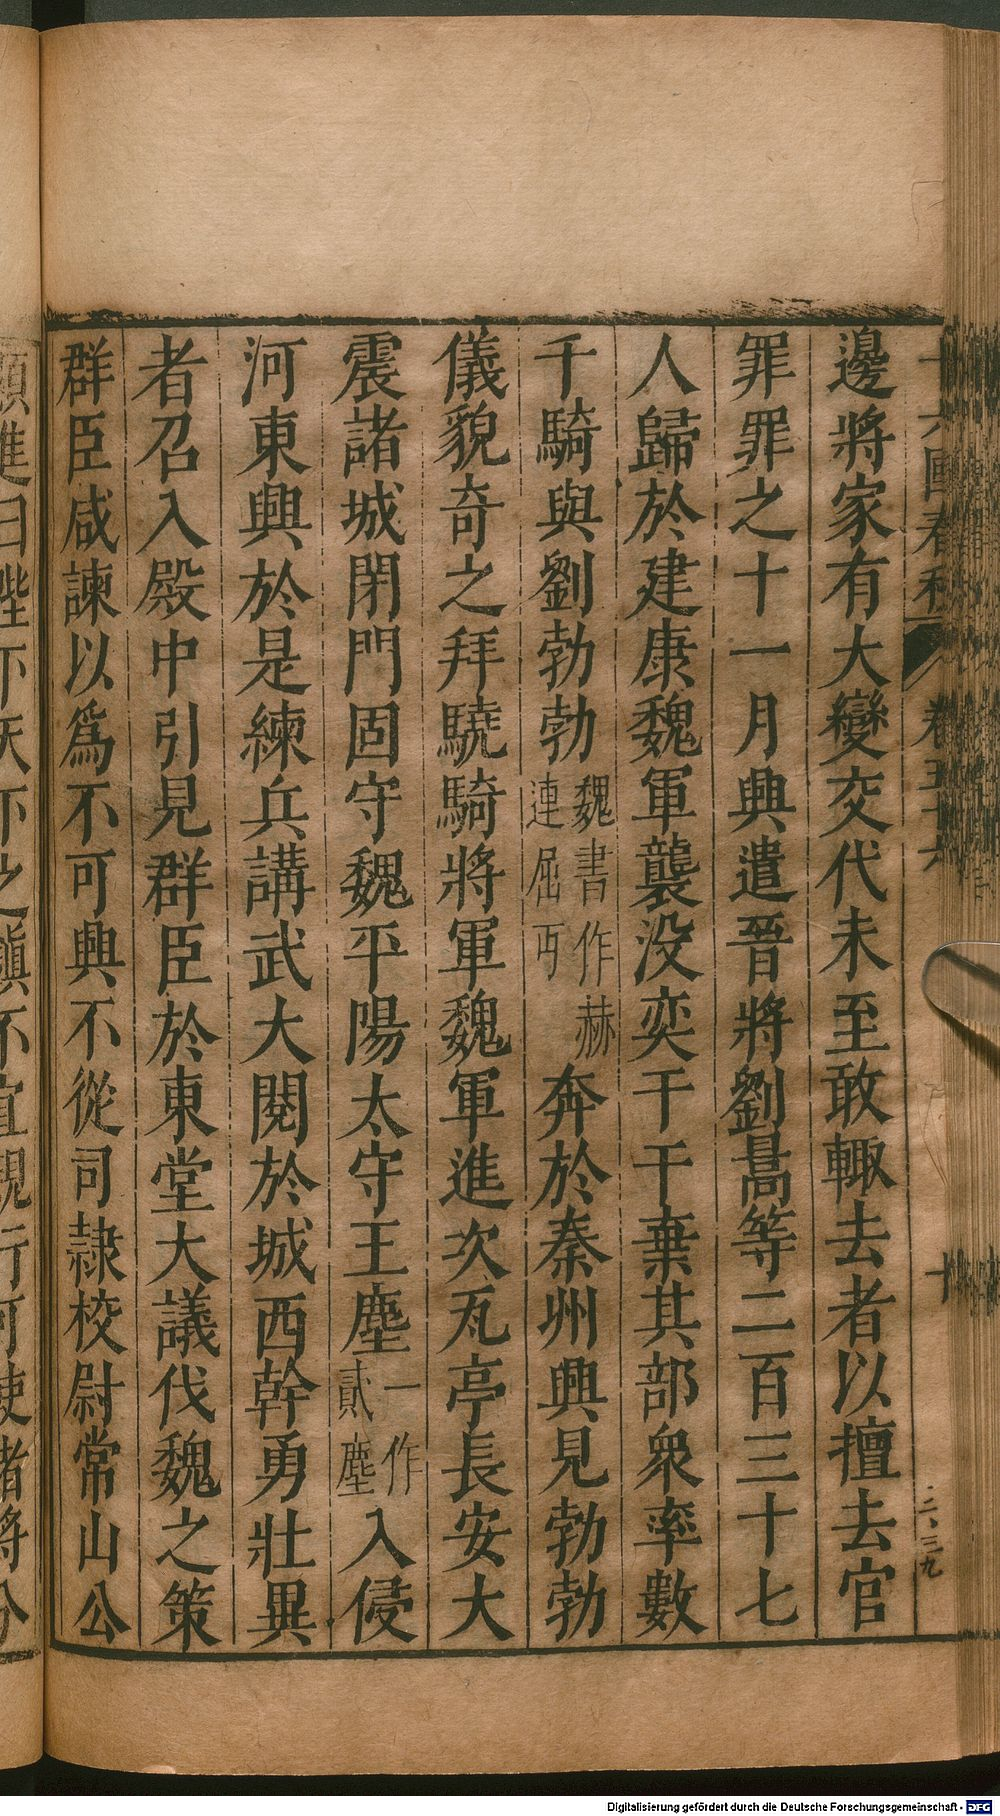 十六國春秋 卷五十六 十
邊將家有大變交代未至敢輙去者以擅去官
罪罪之十一月興遣晉將劉嵩等二百三十七
人歸於建康魏軍襲没奕干干棄其部衆率數
千騎與劉勃勃魏書作赫連屈丐奔於秦州興見勃勃
儀貌奇之拜驍騎將軍魏軍進次瓦亭長安大
震諸城閉門固守魏平陽太守王塵一作貳塵入侵
河東興於是練兵講武大閱於城西幹勇壯異
者召入殿中引見群臣於東堂大議伐魏之策
群臣咸諫以爲不可興不從司隷校尉常山公
二、三九
Digitalisierung gefördert durch die Deutsche Forschungsgemeinschaft - DFG